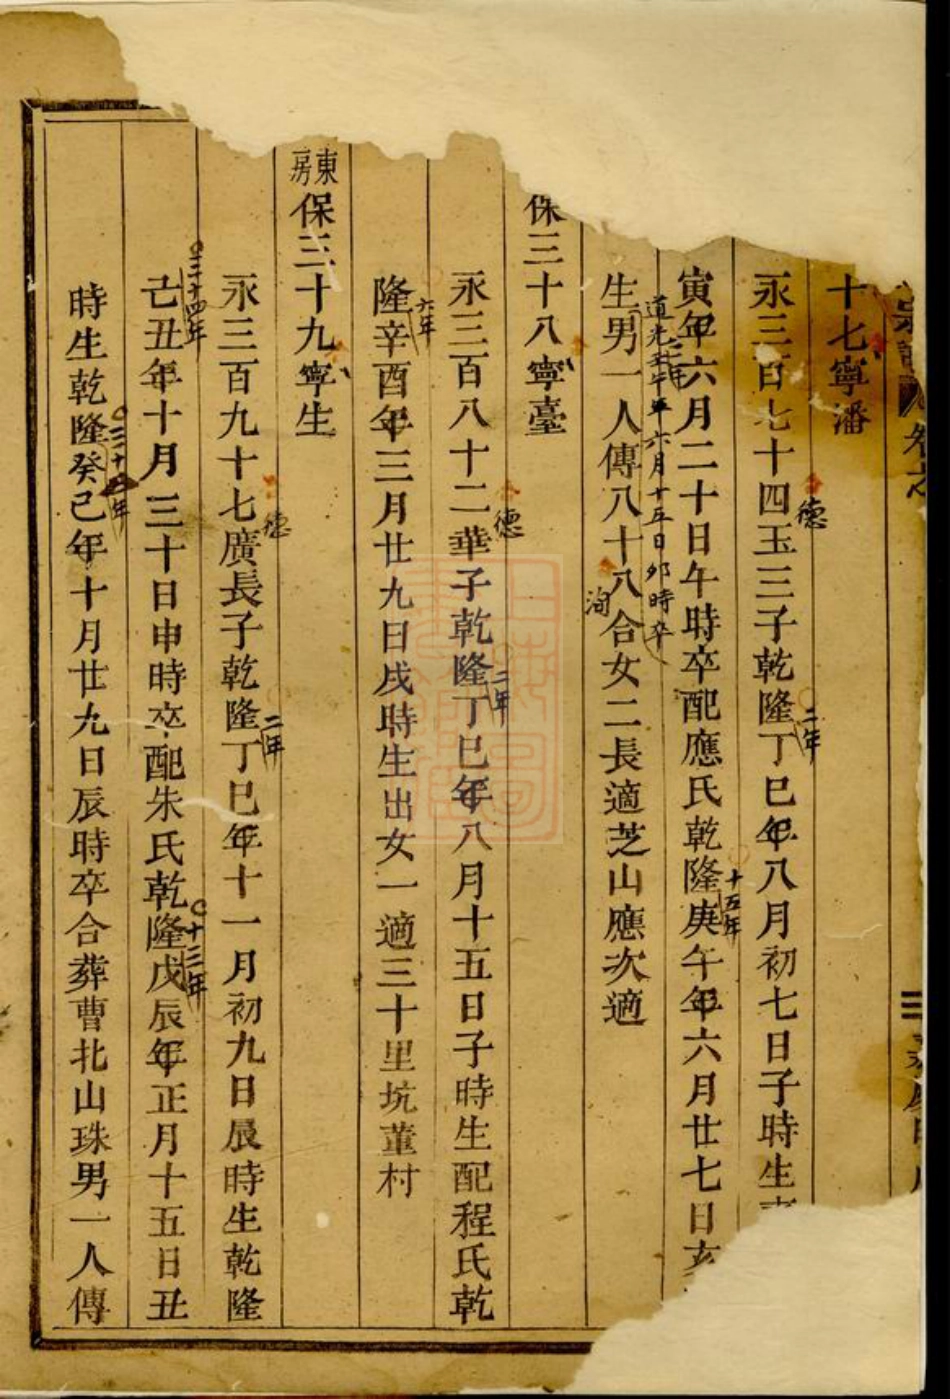 宗譜 卷之
十七寧潘
永三百七十四玉三子乾隆丁巳年八月初七日子時生
德
二年
寅年六月二十日午時卒配應氏乾隆庚午年六月廿七日亥
十五年
道光 年六月十五日卯時卒
生男一人傳八十八合女二長適芝山應次適
洵
保三十八寧臺
永三百八十二華子乾隆丁巳年八月十五日子時生配程氏乾
德
二年
隆辛酉年三月廿九日戌時生出女一適三十里坑董村
六年
東房保三十九寧生
永三百九十七廣長子乾隆丁巳年十一月初九日辰時生乾隆
德
二年
己丑年十月三十日申時卒配朱氏乾隆戊辰年正月十五日丑
三十四年
十三年
時生乾隆癸巳年十月廿九日辰時卒合葬曹北山珠男一人傳